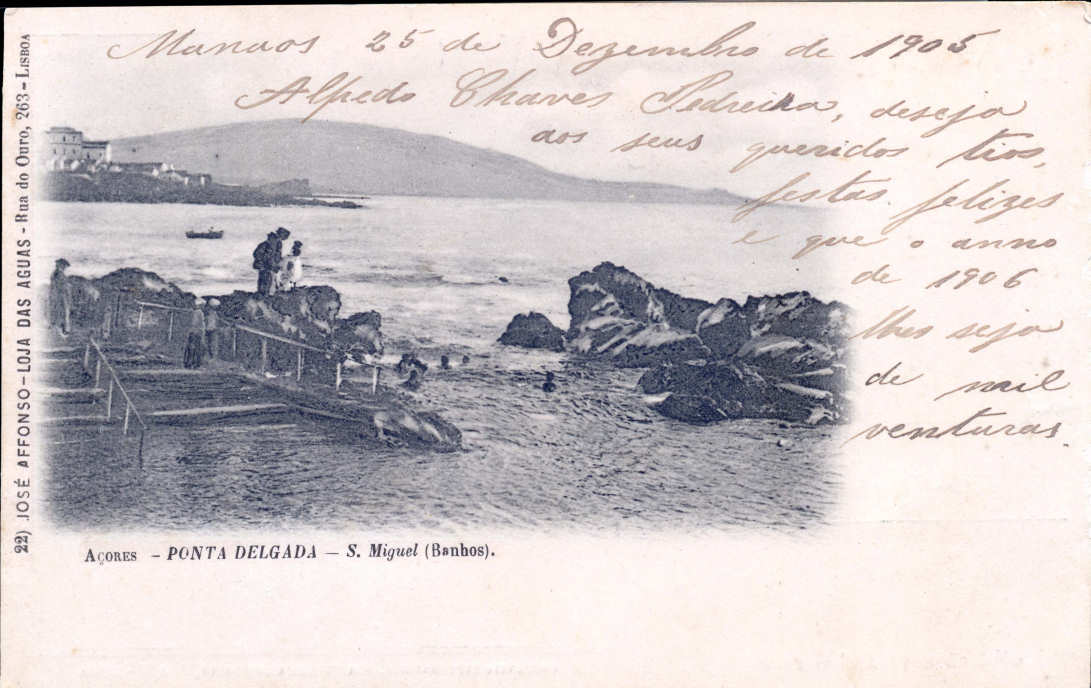 Manaos 25 de Dezembro de 1905
Alfredo Chaves Pedreira, desejo
aos seus queridos tios,
festas felizes
e que o anno
de 1906
lhes sejo
de mil
venturas.
22) JOSÉ AFFONSO - LOJA DAS AGUAS - Rua do Ouro, 263 - LISBOA
AÇORES - PONTA DELGADA - S. Miguel (Banhos).